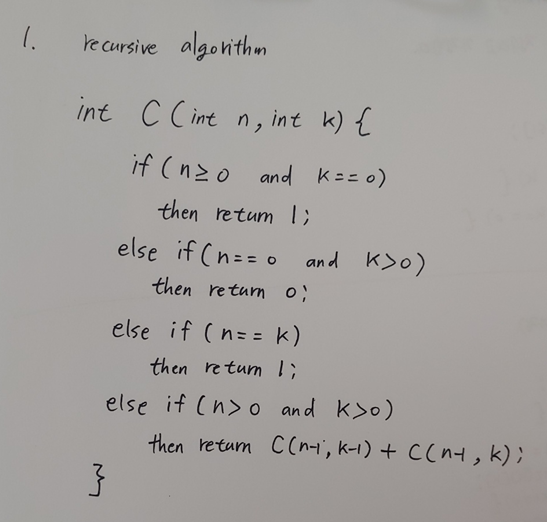 1. recursive algorithm
int C (int n, int k) {
if (n≥0 and k==0)
then return 1;
else if (n==0 and k>0)
then return 0;
else if (n==k)
then return 1;
else if (n>0 and k>0)
then return C(n-1, k-1) + C(n-1, k);
}